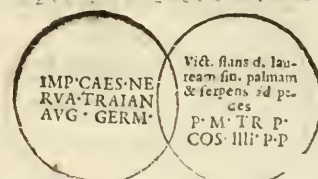 IMP·CAES·NE
RVA·TRAIAN
AVG· GERM·
Vict. stans d. lau-
ream sin. palmam
& serpens ad pe-
des
P· M· TR P·
COS· IIIi· P·P